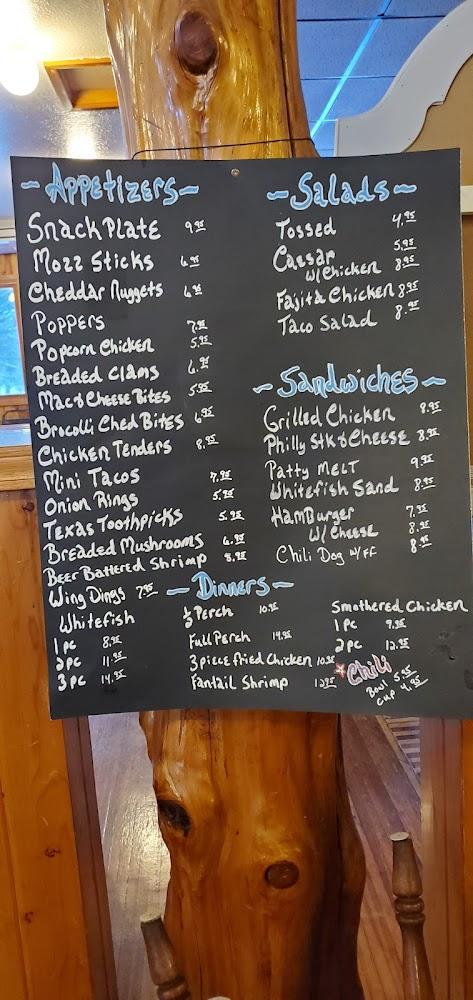 ~ Appetizers ~
Snack Plate 9.95
Mozz Sticks 6.95
Cheddar Nuggets 6.95
Poppers 7.95
Popcorn Chicken 5.95
Breaded Clams 6.95
Mac & Cheese Bites 5.95
Brocolli Ched Bites 6.95
Chicken Tenders 8.95
Mini Tacos 7.95
Onion Rings 5.95
Texas Toothpicks 5.95
Breaded Mushrooms 6.95
Beer Battered Shrimp 8.95
Wing Dings 7.95
~ Salads ~
Tossed 4.95
Caesar 5.95
w/ Chicken 8.95
Fajita Chicken 8.95
Taco Salad 8.95
~ Sandwiches ~
Grilled Chicken 8.95
Philly Stk & Cheese 8.95
Patty Melt 9.95
Whitefish Sand 8.95
Hamburger 7.95
w/ Cheese 8.95
Chili Dog w/ FF 8.95
~ Dinners ~
Whitefish
1 pc 8.95
2 pc 11.95
3 pc 14.95
1/2 Perch 10.95
Full Perch 14.95
3 piece fried Chicken 10.95
Fantail Shrimp 12.95
Smothered Chicken
1 pc 9.95
2 pc 12.95
*Chili
Bowl 5.95
Cup 4.95